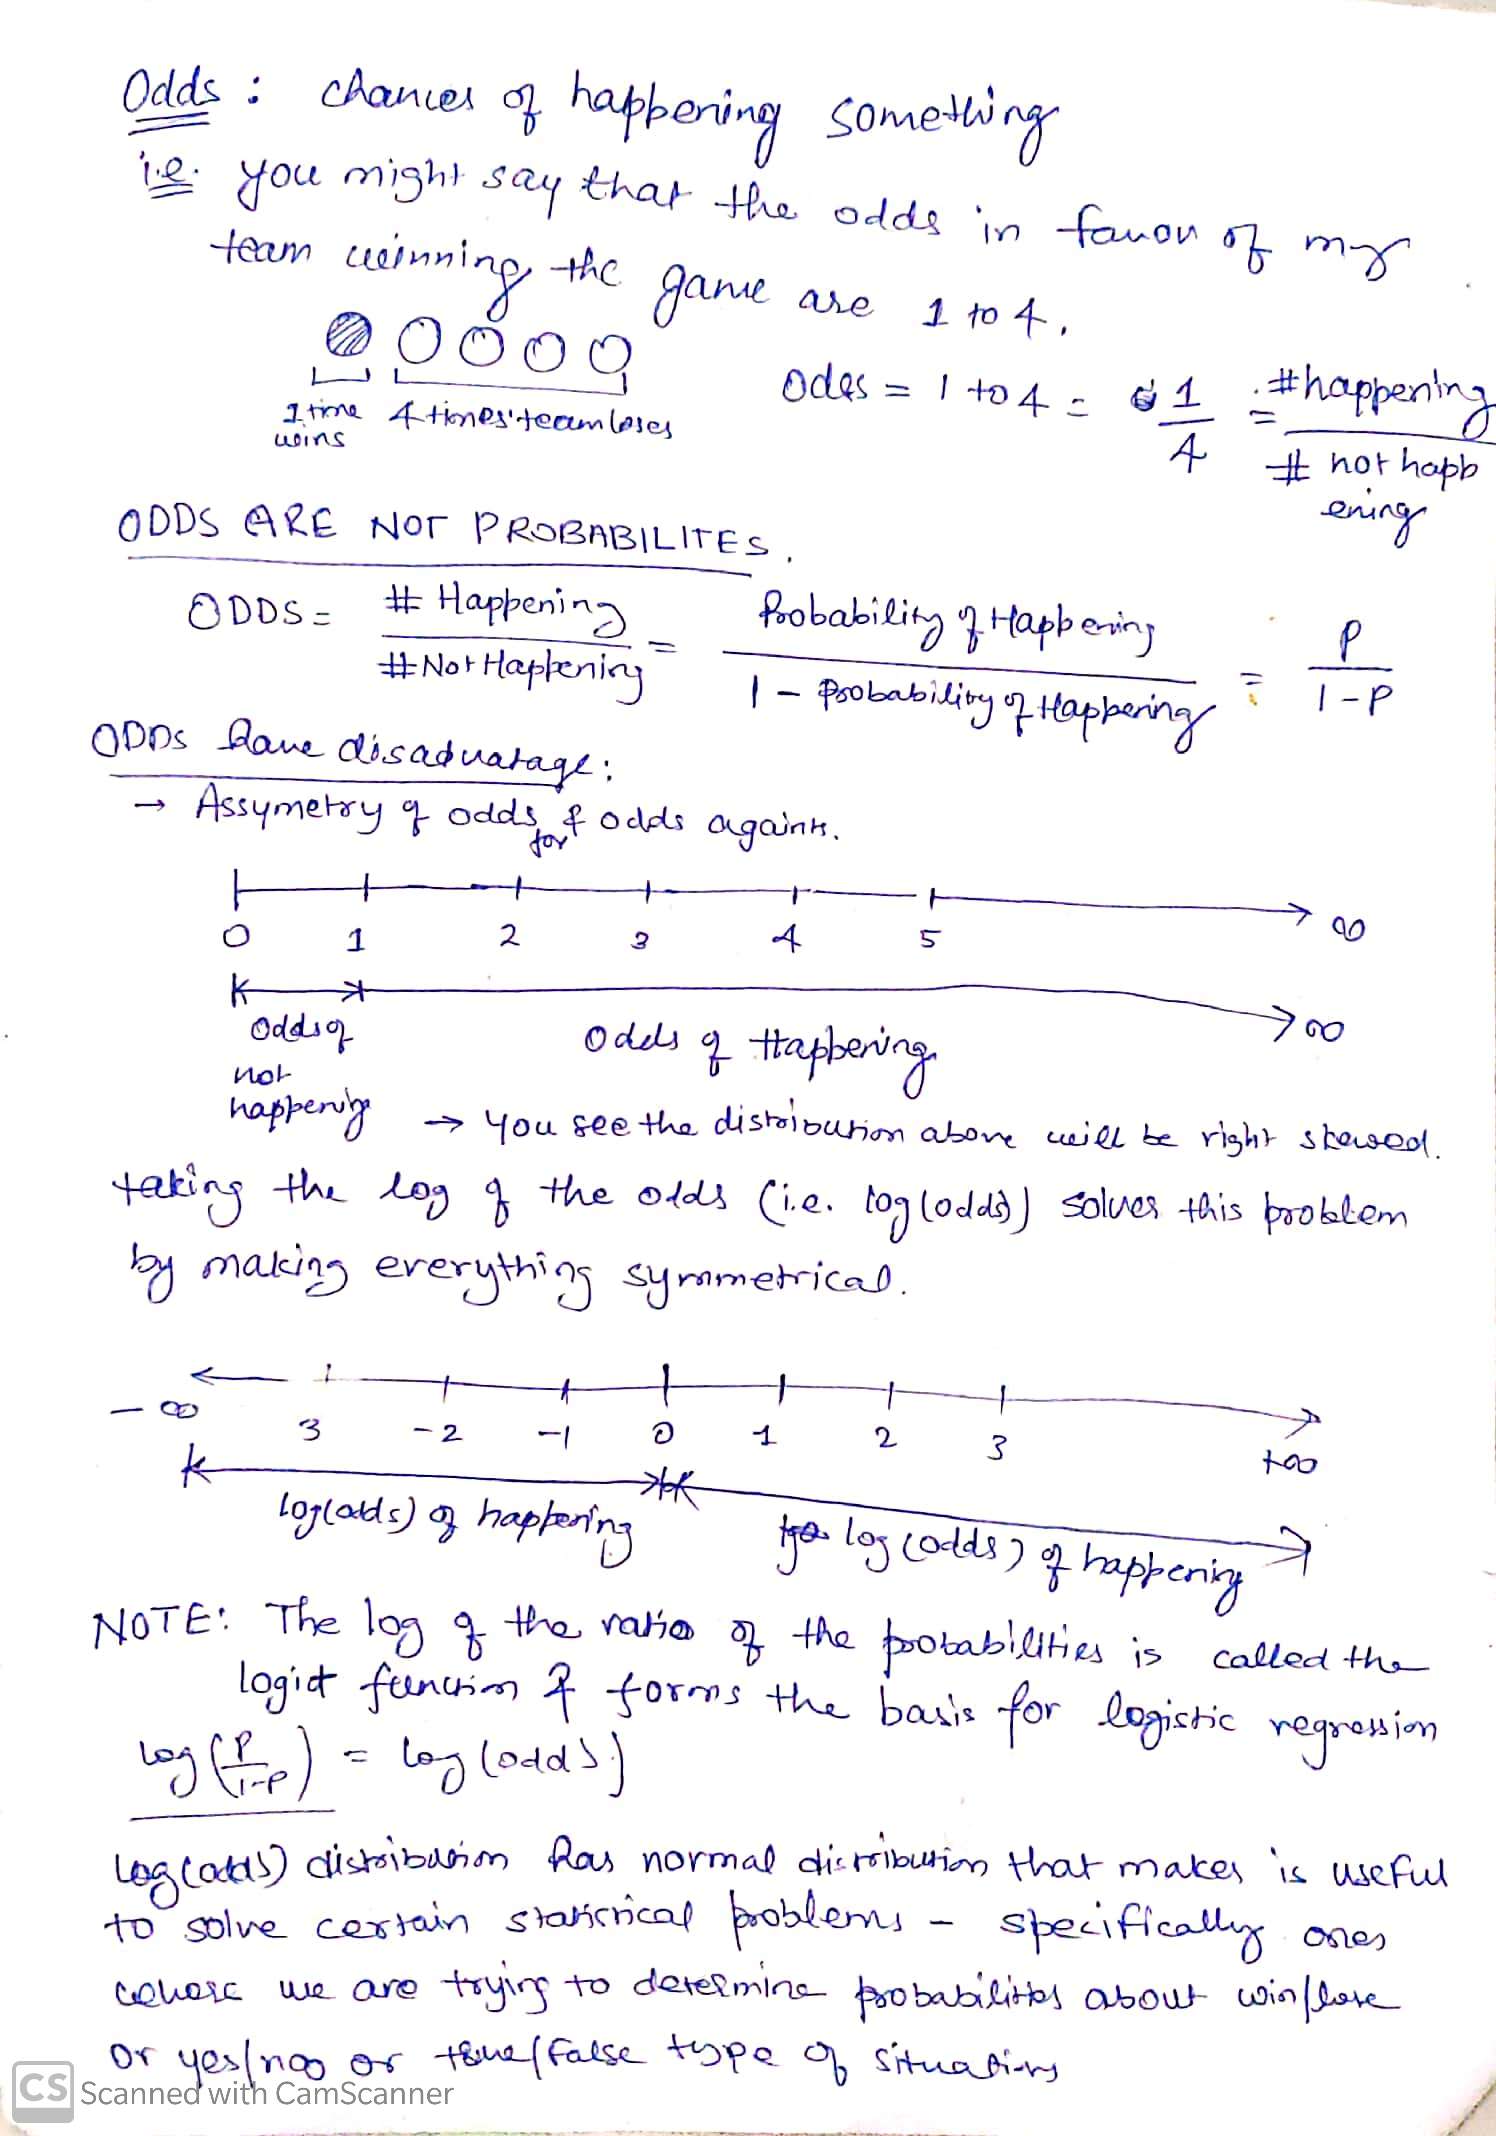 Odds : chances of happening something
i.e. you might say that the odds in favou of my
team winning the game are 1 to 4.
1 time wins
4 times team loses
Odds = 1 to 4 = 1/4 = #happening / # not happening
ODDS ARE NOT PROBABILITES.
ODDS = # Happening / # Not Happening = Probability of Happening / 1 - Probability of Happening = P / 1-P
ODDs have disaduatage:
→ Assymetry of odds for & odds againts.
0 1 2 3 4 5 ∞
Odds of not happening
Odds of Happening
∞
→ You see the distribution above will be right skewed.
taking the log of the odds (i.e. log(odds)) solves this problem
by making everything symmetrical.
-∞ 3 -2 -1 0 1 2 3 +∞
log(odds) of happening
log(odds) of happening
NOTE: The log of the ratio of the probabilities is called the
logit function & forms the basis for logistic regression
log(P/1-P) = log(odds)
Log(odds) distribution has normal distribution that makes is useful
to solve certain statistical problems - specifically ones
where we are trying to determine probabilities about win/lose
or yes/noo or true/false type of situations
CS Scanned with CamScanner